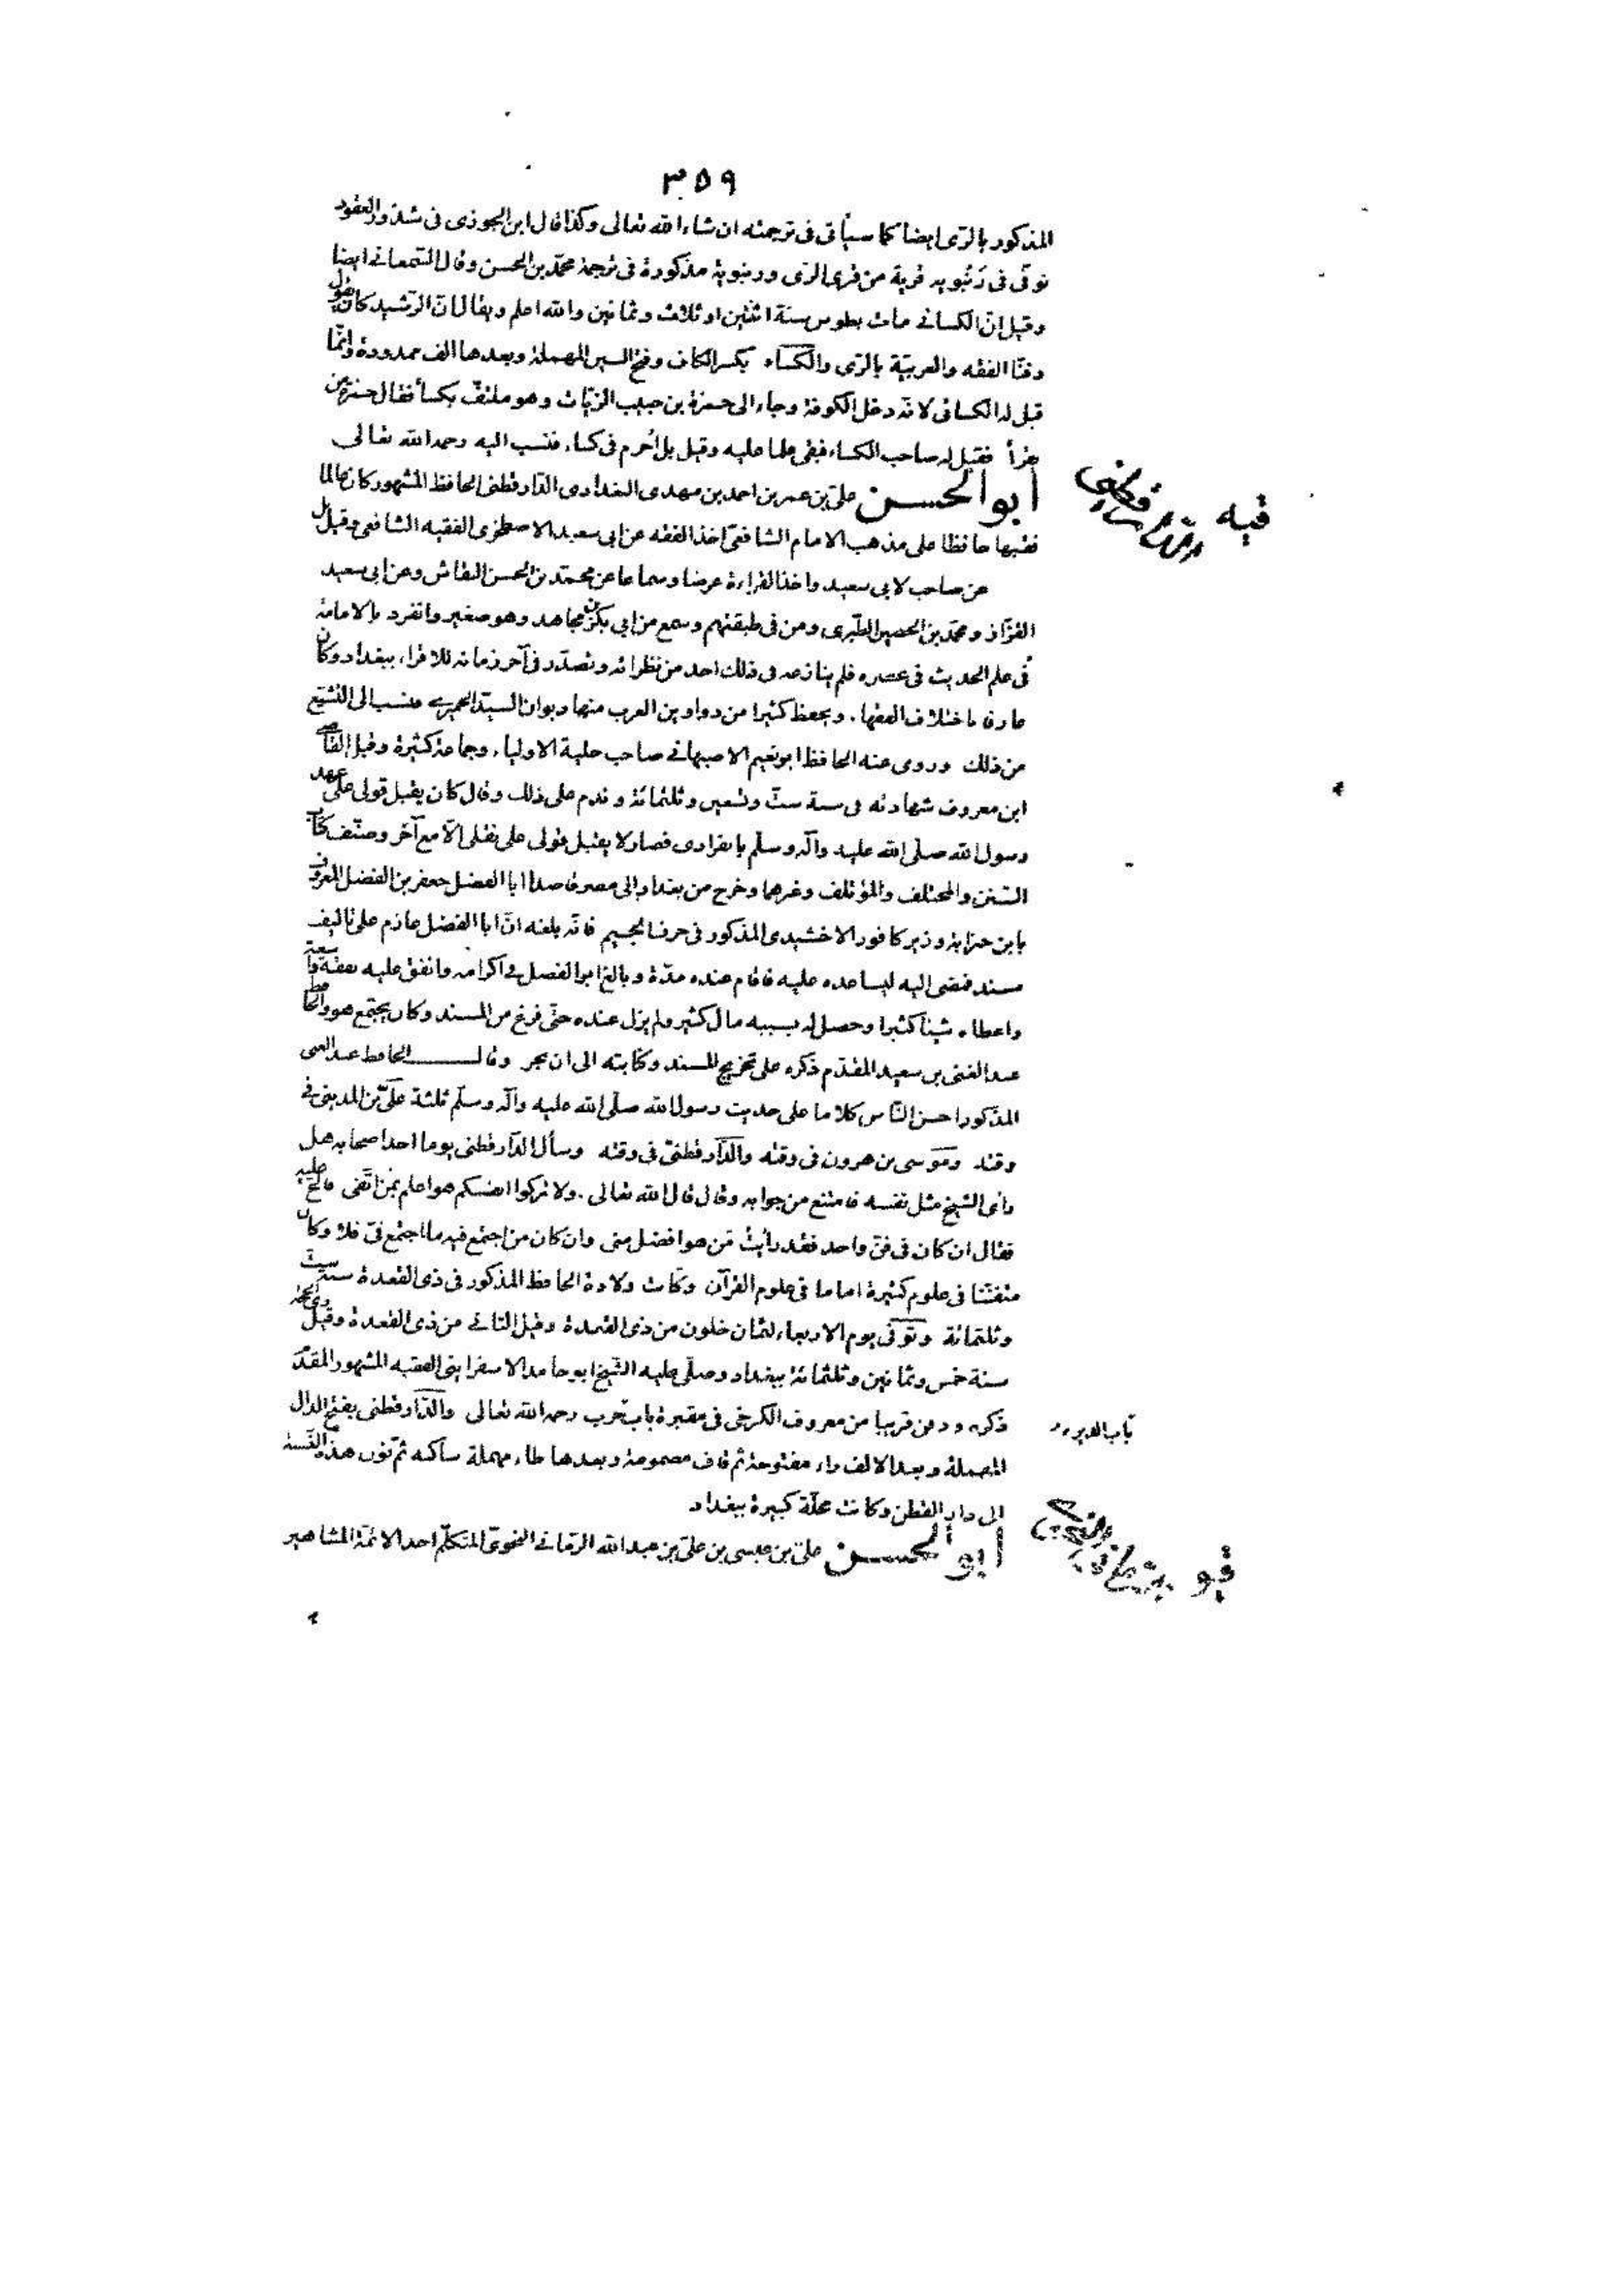 ٣٥٩
المذكور بالرّى ايضا كما سيأتى فى ترجمته ان شاء الله تعالى وكذا قال ابن الجوزى فى شذور العقود
توفّى فى رَنْبويه قرية من قرى الرّى ورنبوية مذكورة فى ترجمة محمّد بن الحسن وقال السّمعانى ايضا
وقيل انّ الكسائى مات بطوس سنة اثنتين او ثلاث وثمانين والله اعلم ويقال انّ الرّشيد كان يقول
دفنّا الفقه والعربيّة بالرّى والكساء بكسر الكاف وفتح السين المهملة وبعدها الف ممدودة وانّما
قيل له الكسائى لانّه دخل الكوفة وجاء الى حمزة بن حبيب الزيّات وهو ملتفّ بكسأ فقال حمزة من
يقرأ فقيل له صاحب الكساء فبقى علما عليه وقيل بل أحرم فى كساء فنسب اليه رحمه الله تعالى
أبو الحسن علىّ بن عمر بن احمد بن مهدى البغدادى الدّارقطنى الحافظ المشهور كان عالما
فيه
فقيها حافظا على مذهب الامام الشافعىّ اخذ الفقه عن ابى سعيد الاصطخرى الفقيه الشافعى وقيل بل
عن صاحب لابى سعيد واخذ القراءة عرضا وسماعا عن محمّد بن الحسن النقاش وعن ابى سعيد
القزّاز ومحمّد بن الحصين الطّبرى ومن فى طبقتهم وسمع من ابى بكر بن مجاهد وهو صغير وانفرد بالامامة
فى علم الحديث فى عصره فلم ينازعه فى ذلك احد من نظرائه وتصدّر فى آخر زمانه للاقراء ببغداد وكان
عارفا باختلاف الفقهاء ويحفظ كثيرا من دواوين العرب منها ديوان السيّد الحميرى فنسب الى التشيّع
من ذلك وروى عنه الحافظ ابو نعيم الاصبهانى صاحب حلية الاولياء وجماعة كثيرة وقبل القاضى
ابن معروف شهادته فى سنة ستّ وتسعين وثلثمائة وندم على ذلك وقال كان يقبل قولى على عهد
رسول الله صلّى الله عليه وآله وسلّم بانفرادى فصار لا يقبل قولى على نقلى الّا مع آخر وصنّف كتاب
السّنن والمختلف والمؤتلف وغيرهما وخرج من بغداد الى مصر قاصدا ابا الفضل جعفر بن الفضل المعروف
بابن حنزابة وزير كافور الاخشيدى المذكور فى حرف الجيم فانّه بلغه انّ ابا الفضل عازم على تاليف
مسند فمضى اليه ليساعده عليه فاقام عنده مدّة وبالغ ابو الفضل فى اكرامه وانفق عليه نفقة واسعة
واعطاه شيئا كثيرا وحصل له بسببه مال كثير ولم يزل عنده حتّى فرغ من المسند وكان يجتمع هو والحافظ
عبد الغنى بن سعيد المقدّم ذكره على تخريج المسند وكتابته الى ان نجز وقال الحافظ عبد الغنى
المذكور احسن النّاس كلاما على حديث رسول الله صلّى الله عليه وآله وسلّم ثلثة علىّ بن المدينى فى
وقته وموسى بن هرون فى وقته والدّارقطنىّ فى وقته وسأل الدّارقطنى يوما احد اصحابه هل
رأى الشيخ مثل نفسه فامتنع من جوابه وقال قال الله تعالى ولا تزكّوا انفسكم هو اعلم بمن اتّقى فالحّ عليه
فقال ان كان فى فنّ واحد فقد رأيتُ مَن هو افضل منى وان كان من اجتمع فيه ما اجتمع فىّ فلا وكان
متفنّنا فى علوم كثيرة اماما فى علوم القرآن وكانت ولادة الحافظ المذكور فى ذى القعدة سنة ستّ
وثلثمائة وتوفّى يوم الاربعاء لثمان خلون من ذى القعدة وقيل الثانى من ذى القعدة وقيل ذى الحجّة
سنة خمس وثمانين وثلثمائة ببغداد وصلّى عليه الشّيخ ابو حامد الاسفراينى الفقيه المشهور المقدّم
ذكره ودفن قريبا من معروف الكرخى فى مقبرة باب حرب رحمه الله تعالى والدّارقطنى بفتح الدال
باب الدير
المهملة وبعد الالف راء مفتوحة ثم قاف مضمومة وبعدها طاء مهملة ساكنة ثم نون هذه النّسبة
الى دار القطن وكانت محلّة كبيرة ببغداد
أبو الحسن علىّ بن عيسى بن علىّ بن عبد الله الرّمانى النحوىّ المتكلّم احد الائمّة المشاهير